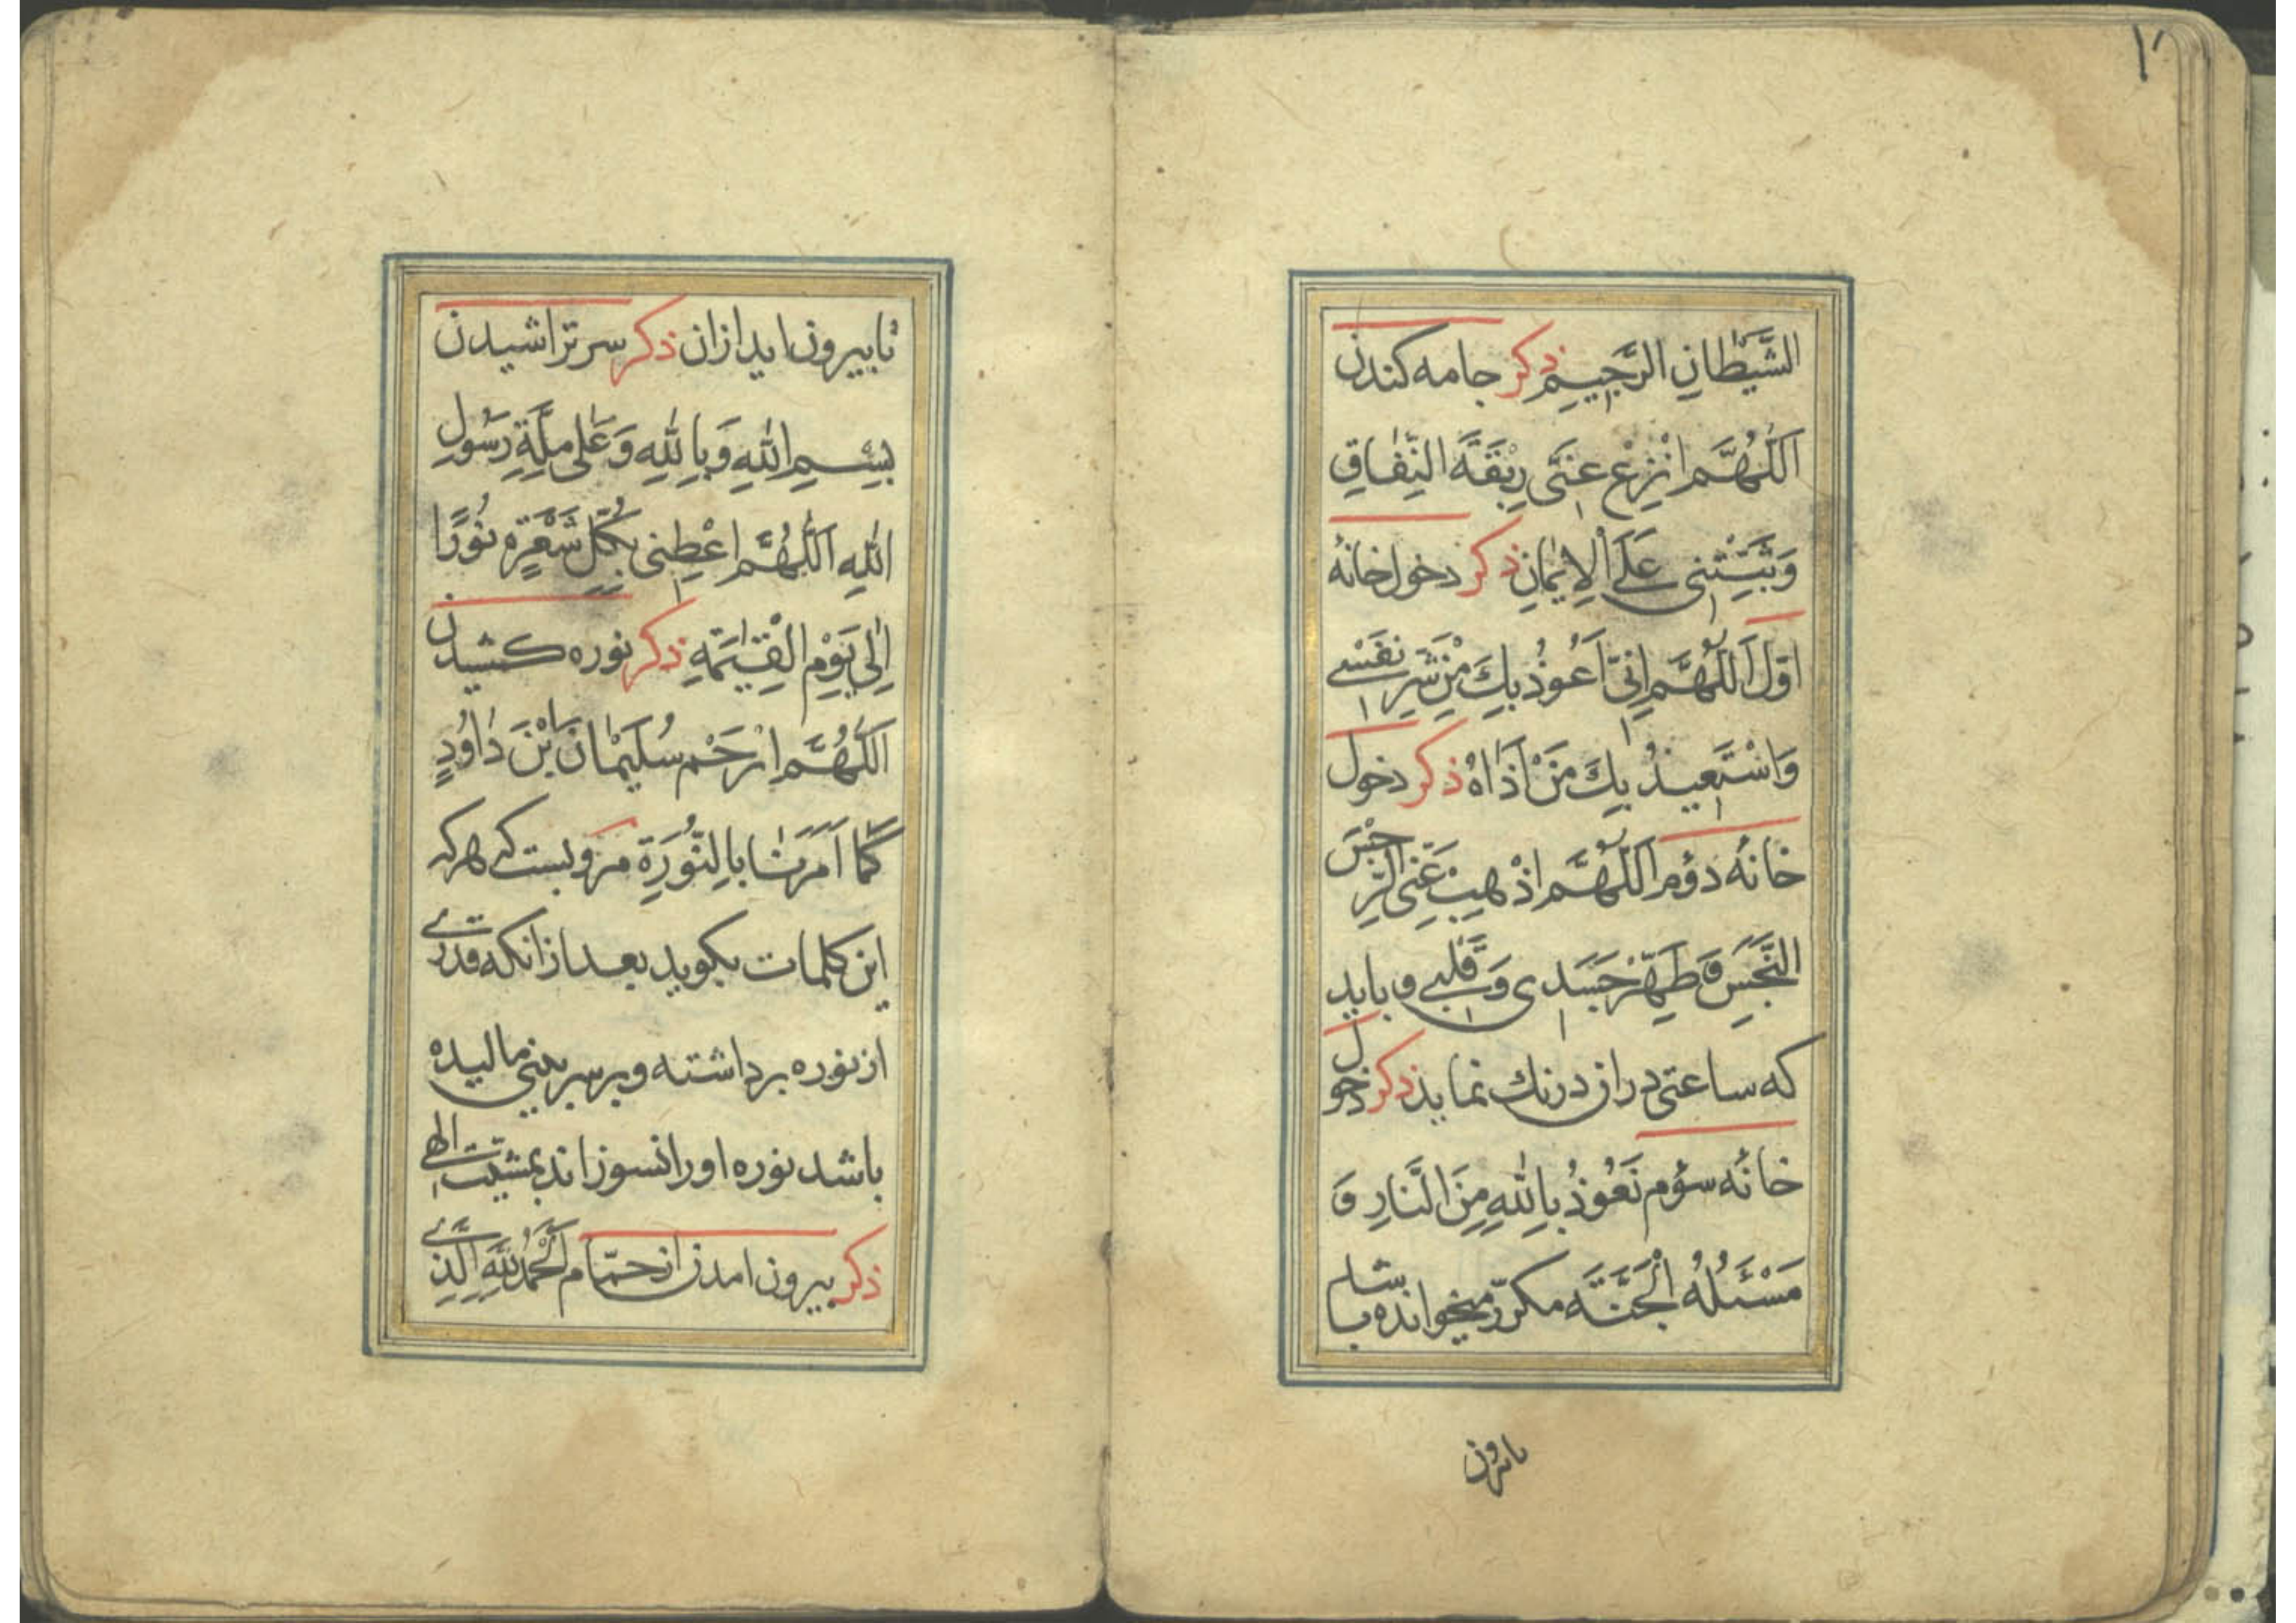 ۱۲
الشَّيْطَانِ الرَّجِيمِ ذکر جامه کندن
اَللّٰهُمَّ انْزِعْ عَنّى رِبْقَةَ النِّفَاقِ
وَثَبِّتْنى عَلَى الْاِيمَانِ ذکر دخول خانهٔ
اوّل اَللّٰهُمَّ اِنّى اَعُوذُ بِكَ مِنْ شَرِّ نَفْسى
وَاسْتَعيذُ بِكَ مِنْ اَذَاهُ ذکر دخول
خانهٔ دوّم اَللّٰهُمَّ اذْهِبْ عَنِّى الرِّجْسَ
النَّجِسَ وَ طَهِّرْ جَسَدى وَ قَلْبى و باید
که ساعتی دران درنك نماید ذکر دخول
خانهٔ سوّم نَعُوذُ بِاللّٰهِ مِنَ النَّارِ وَ
مَسْئَلُهُ الْجَنَّةَ مکرّر میخوانده باشد
تا بیرون اید ازان ذکر سر تراشیدن
بِسْمِ اللّٰهِ وَ بِاللّٰهِ وَ عَلٰى مِلَّةِ رَسُولِ
اللّٰهِ اَللّٰهُمَّ اعْطِنى بِكُلِّ شَعْرَةٍ نُورًا
اِلٰى يَوْمِ الْقِيٰمَةِ ذکر نوره کشیدن
اَللّٰهُمَّ ارْحَمْ سُلَيْمَانَ بْنَ دَاوُدٍ
كَمَا اَمَرَنَا بِالنُّورَةِ مرویست که هر که
این کلمات بکوید بعد از انکه قدری
از نوره برداشته و بر سر بینی مالیده
باشد نوره او را نسوزاند بمشیّت الهی
ذکر بیرون امدن از حمّام اَلْحَمْدُ لِلّٰهِ الَّذى